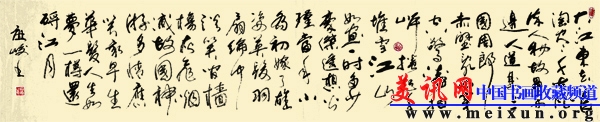 大江東去浪
淘尽千古风流
人物故壘西
邊人道是三
国周郎
赤壁乱石穿
空驚涛拍
岸捲起千
堆雪江山
如画一時多少
豪傑遥想公
瑾當年小
喬初嫁了雄
姿英發羽
扇綸巾
談笑间檣
櫓灰飛烟
滅故國神
游多情應
笑我早生
華髮人生如
夢一樽還
酹江月
美讯网
中国书画收藏频道
www.meixun.org